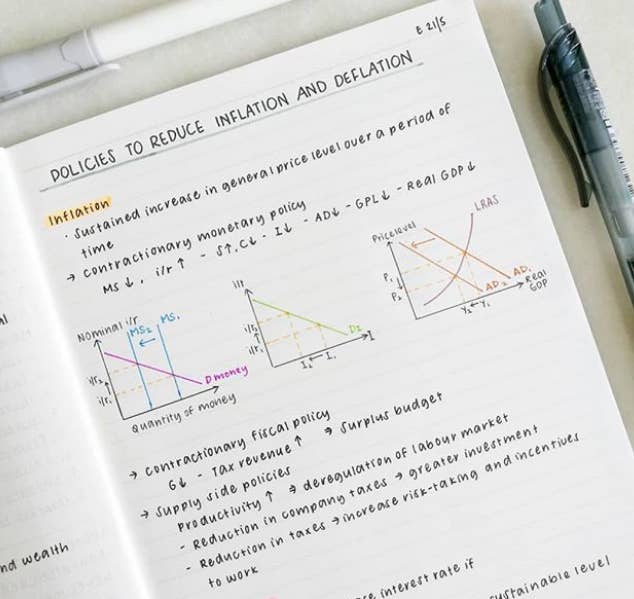 E 21/5
POLICIES TO REDUCE INFLATION AND DEFLATION
Inflation
· Sustained increase in general price level over a period of
time
→ contractionary monetary policy
MS↓, i/r↑ - S↑, C↓ - I↓ - AD↓ - GPL↓ - Real GDP↓
Nominal i/r
MS₂ MS₁
i/r₂
i/r₁
D money
Quantity of money
i/r
i/r₂
i/r₁
DI
I
I₂ ← I₁
Price level
LRAS
P₁
P₂
AD₂ AD₁
Y₂ ← Y₁
Real
GDP
→ contractionary fiscal policy
G↓ - Tax revenue↑ → surplus budget
→ supply side policies
Productivity↑ → deregulation of labour market
- Reduction in company taxes → greater investment
- Reduction in taxes → increase risk-taking and incentives
to work
interest rate if
sustainable level
wealth